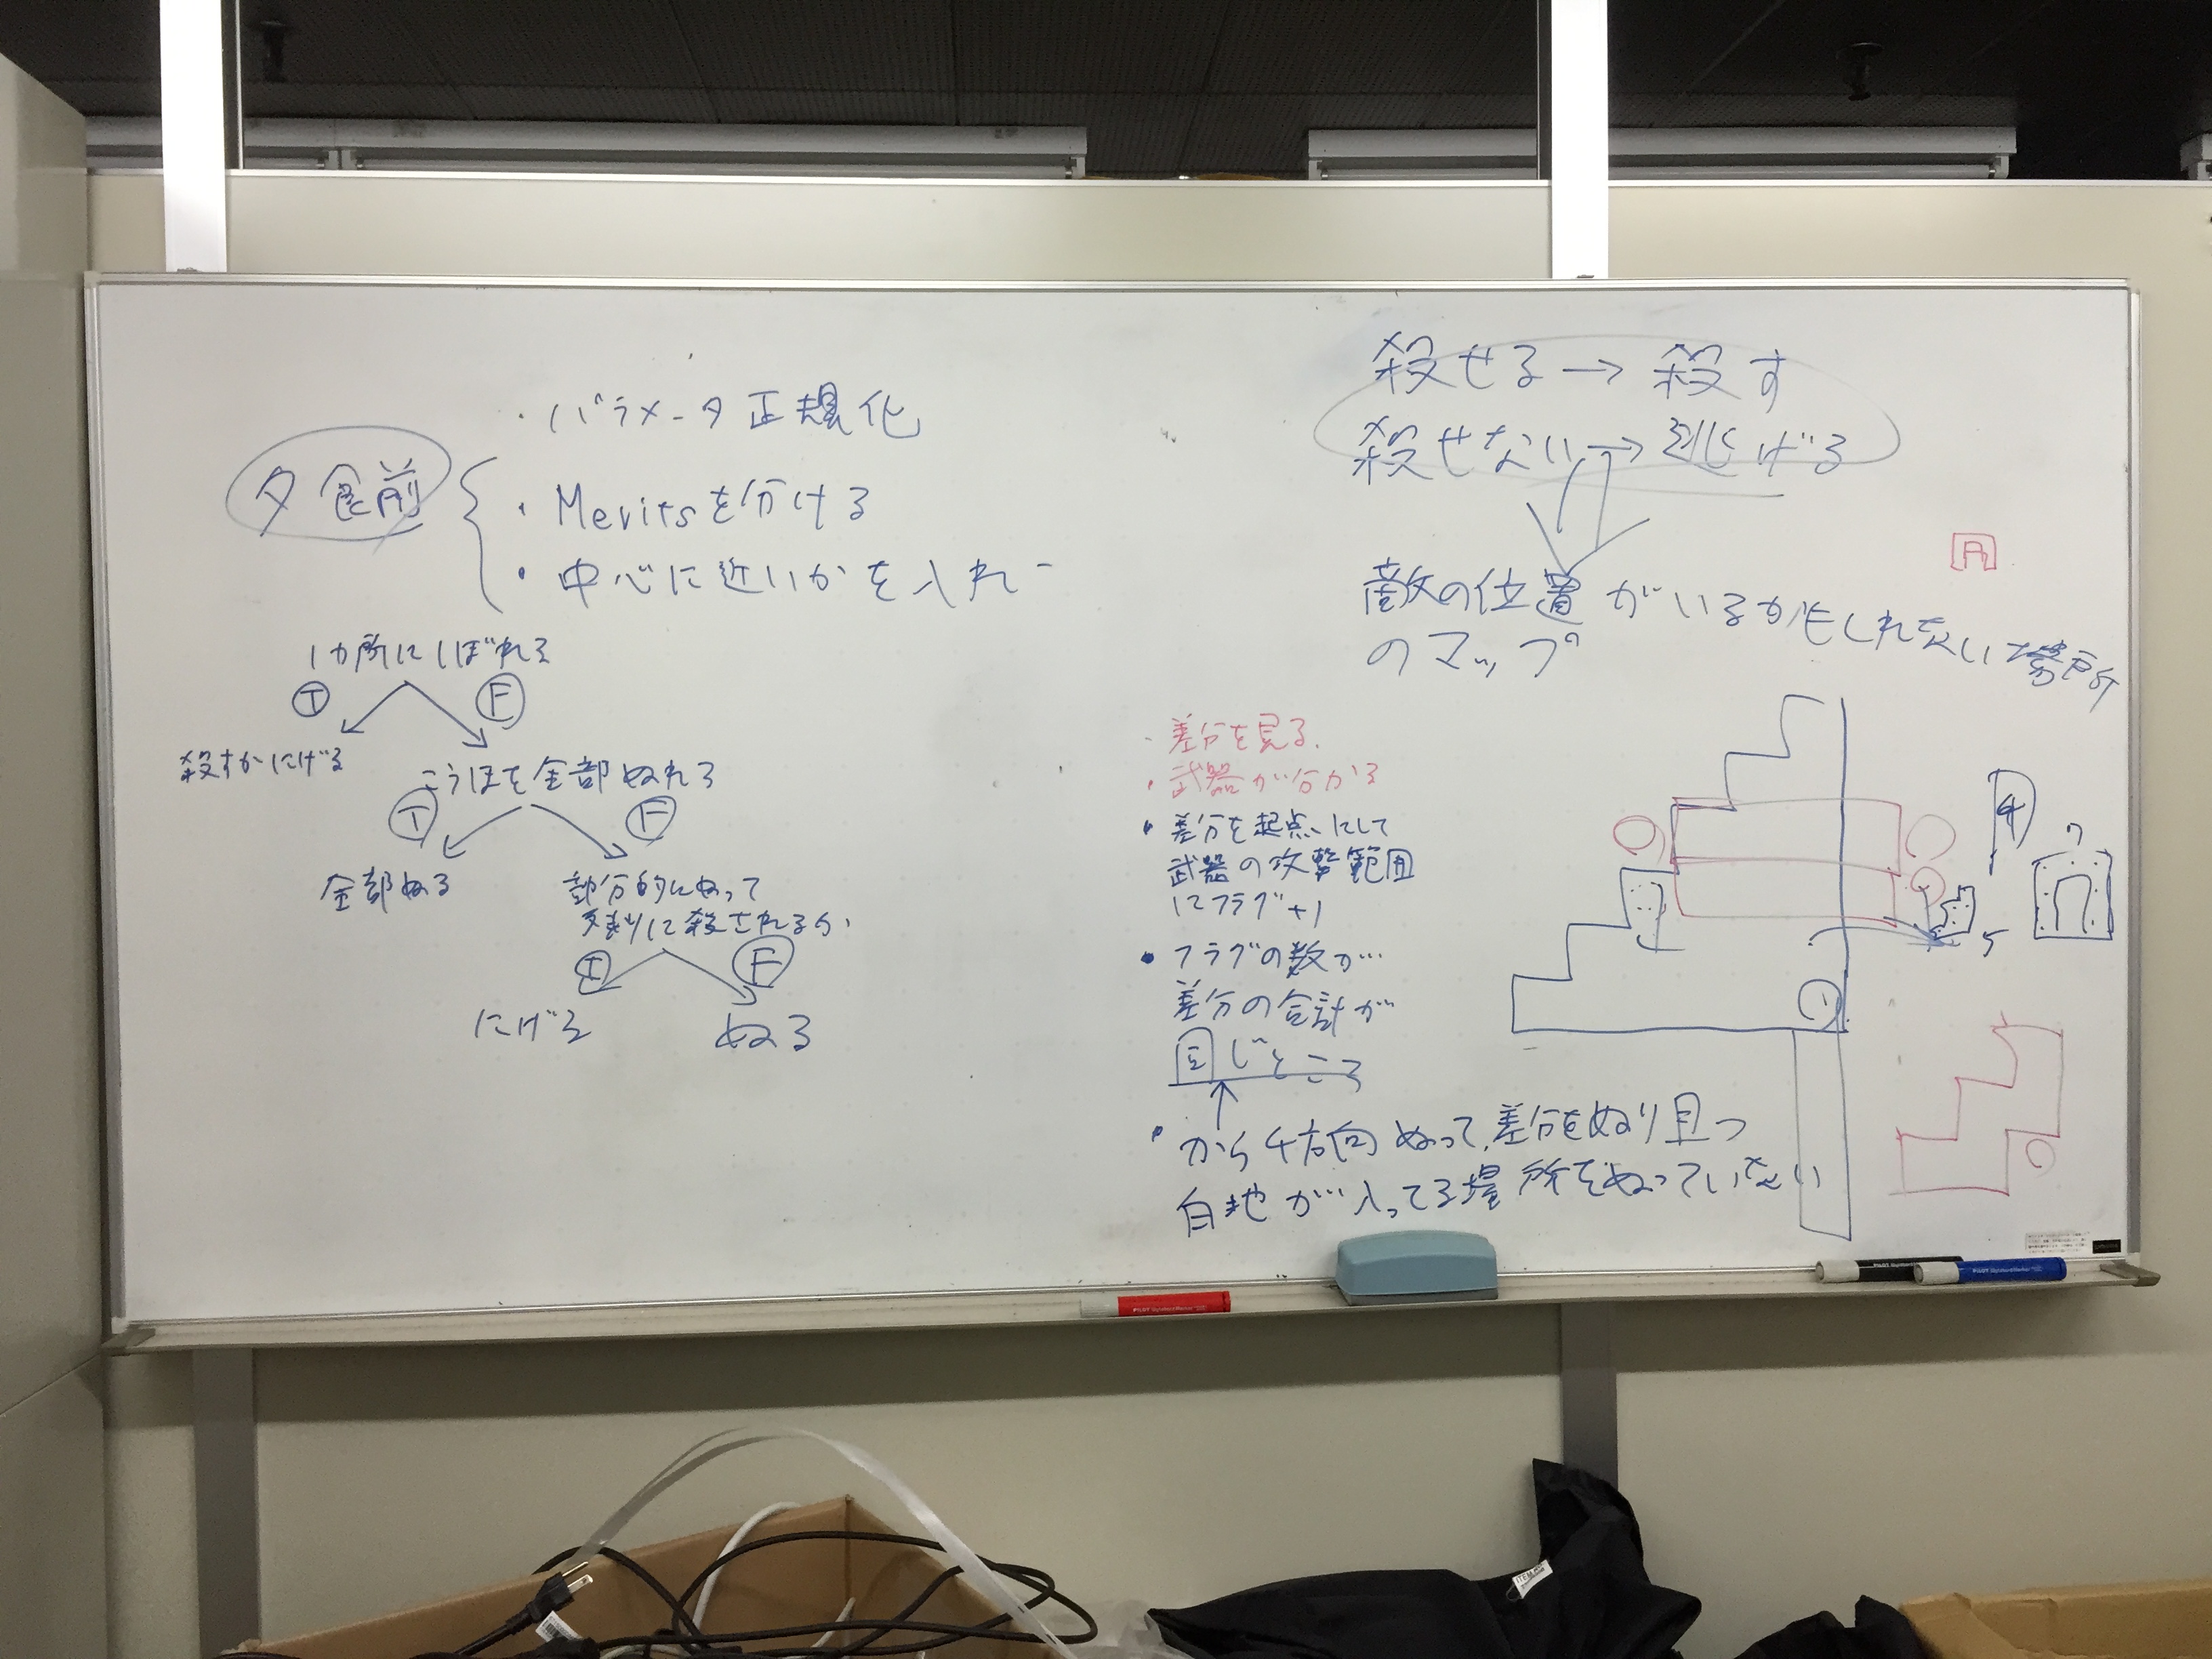 ・パラメータ正規化
夕食前
・Meritsを分ける
・中心に近いかを入れー
1カ所にしぼれる
T F
殺すかにげる
こうほを全部ぬれる
T F
全部ぬる
部分的にぬって
残りに殺されるか
T F
にげる
ぬる
殺せる→殺す
殺せない→逃げる
敵の位置がいるかもしれない場所
のマップ
・差分を見る.
・武器が分かる
・差分を起点にして
武器の攻撃範囲
にフラグ+1
・フラグの数が…
差分の合計が
同じところ
・から4方向ぬって、差分をぬり且つ
自地が入ってる場所をぬっていない